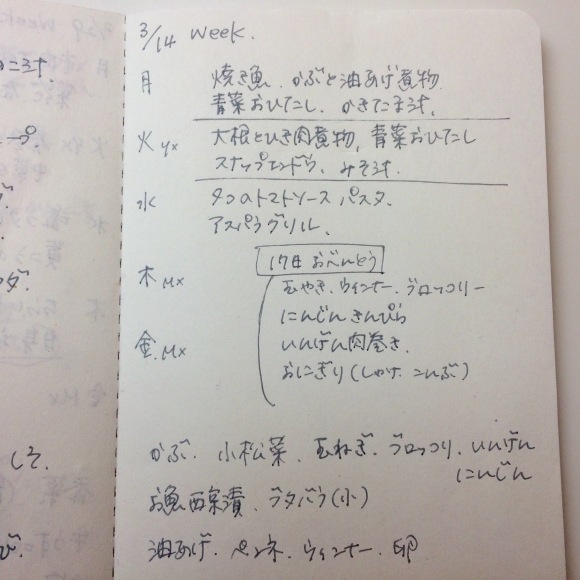 3/14 Week.
月 焼き魚、かぶと油あげ煮物
青菜おひたし、かきたま汁、
火 Yx 大根とひき肉煮物、青菜おひたし
スナップエンドウ、みそ汁.
水 タコのトマトソース パスタ
アスパラグリル、
17日 おべんとう
木 Mx 玉やき、ウィンナー、ブロッコリー
にんじん きんぴら
金. Mx いんげん肉巻き、
おにぎり(しゃけ、こんぶ)
かぶ、小松菜、玉ねぎ、ブロッコリ、いんげん
にんじん
お魚西京漬、ブタバラ(小)
油あげ、ペンネ、ウィンナー、卵